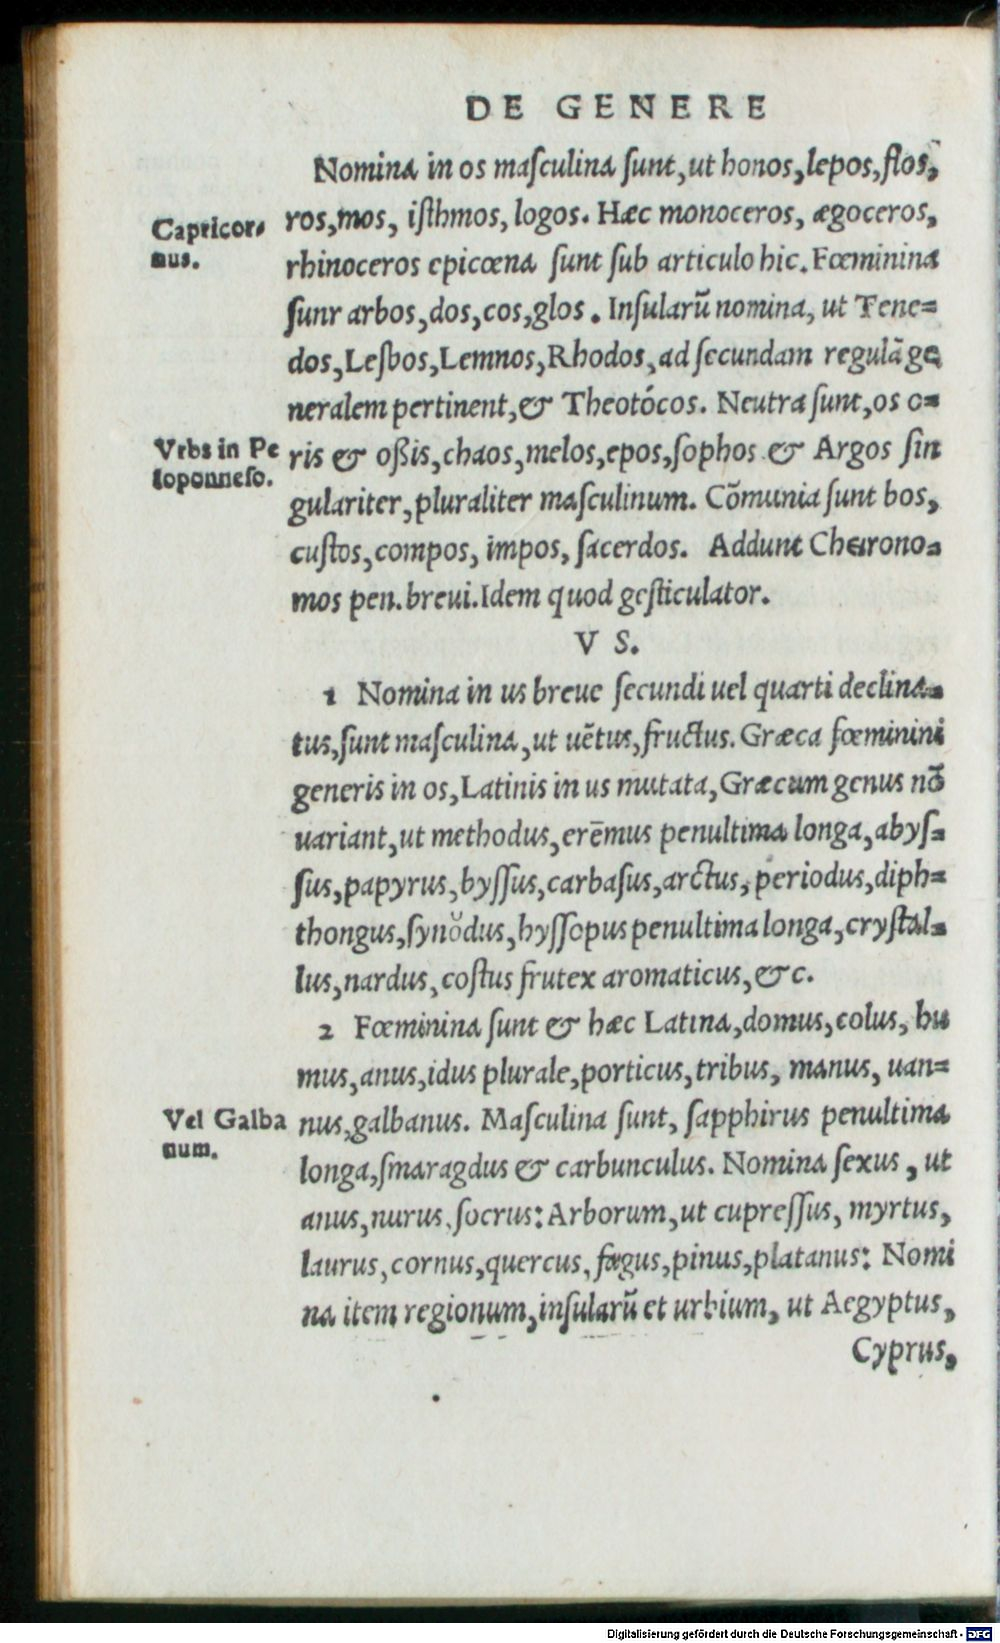 DE GENERE
Nomina in os maſculina ſunt, ut honos, lepos, flos,
ros, mos, iſthmos, logos. Hæc monoceros, ægoceros,
Capricor-
nus.
rhinoceros epicœna ſunt ſub articulo hic. Fœminina
ſunr arbos, dos, cos, glos. Inſularũ nomina, ut Tene=
dos, Leſbos, Lemnos, Rhodos, ad ſecundam regulã ge
neralem pertinent, & Theotócos. Neutra ſunt, os o=
Vrbs in Pe
loponneſo.
ris & oßis, chaos, melos, epos, ſophos & Argos ſin
gulariter, pluraliter maſculinum. Cõmunia ſunt bos,
cuſtos, compos, impos, ſacerdos. Addunt Cheirono=
mos pen. breui. Idem quod geſticulator.
V S.
1 Nomina in us breue ſecundi uel quarti declina=
tus, ſunt maſculina, ut uẽtus, fructus. Græca fœminini
generis in os, Latinis in us mutata, Græcum genus nõ
uariant, ut methodus, erēmus penultima longa, abyſ=
ſus, papyrus, byſſus, carbaſus, arctus, periodus, diph=
thongus, ſynŏdus, hyſſopus penultima longa, cryſtal=
lus, nardus, coſtus frutex aromaticus, &c.
2 Fœminina ſunt & hæc Latina, domus, colus, hu
mus, anus, idus plurale, porticus, tribus, manus, uan=
Vel Galba
num.
nus, galbanus. Maſculina ſunt, ſapphirus penultima
longa, ſmaragdus & carbunculus. Nomina ſexus, ut
anus, nurus, ſocrus: Arborum, ut cupreſſus, myrtus,
laurus, cornus, quercus, fagus, pinus, platanus: Nomi
na item regionum, inſularũ et urbium, ut Aegyptus,
Cyprus,
Digitalisierung gefördert durch die Deutsche Forschungsgemeinschaft - DFG